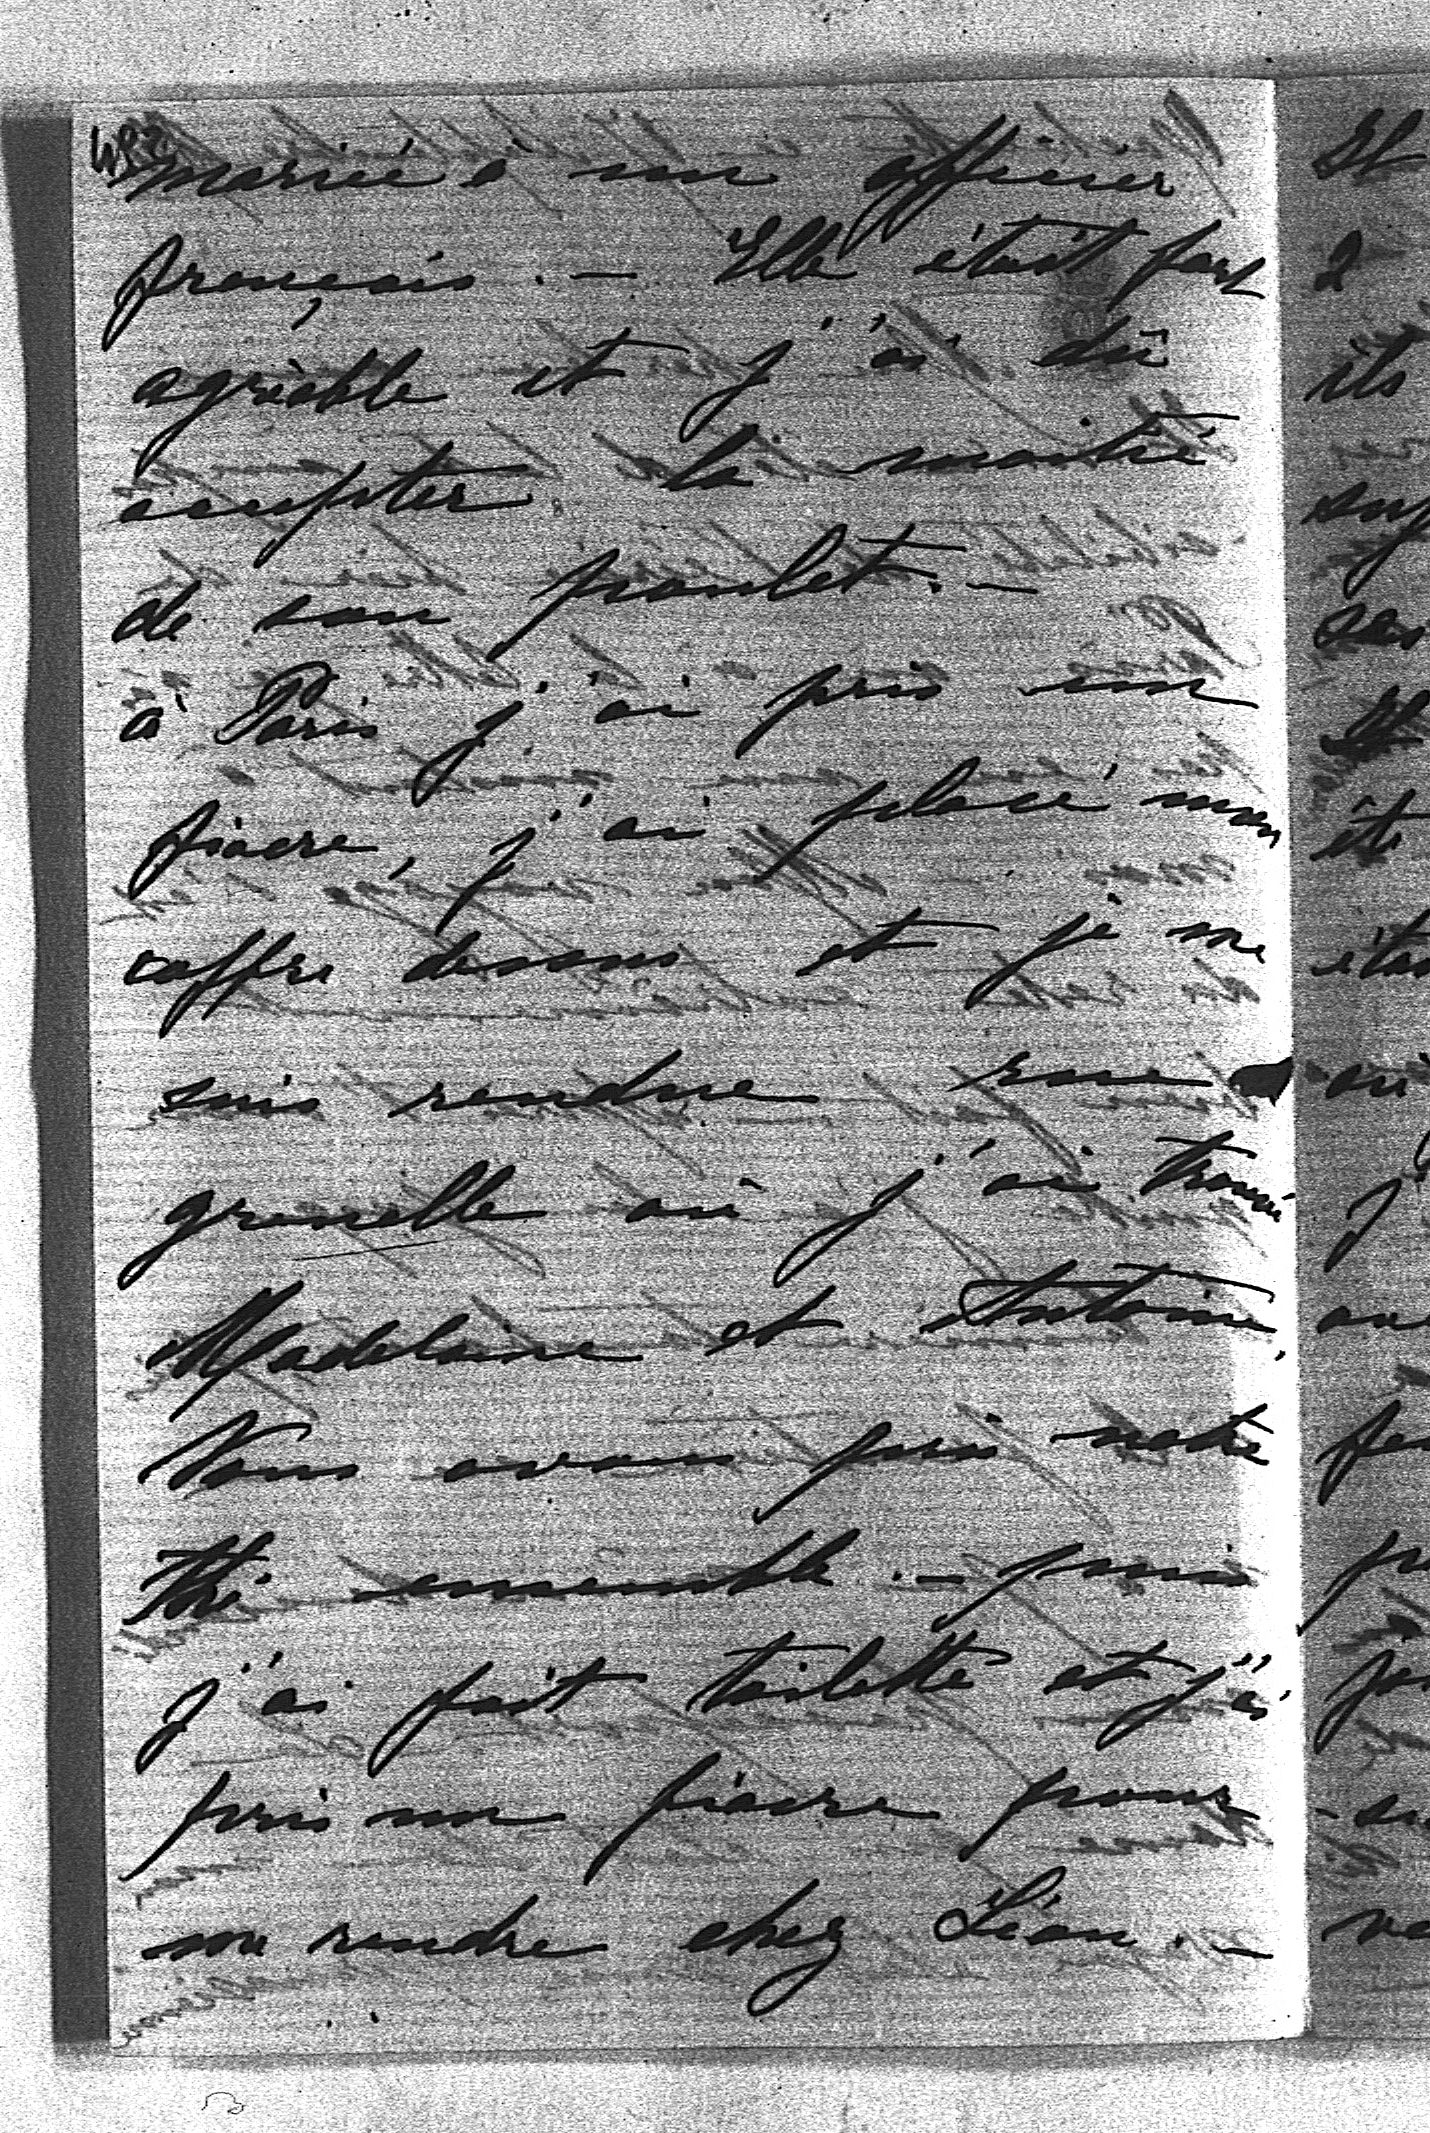 mariée à un officier
français. — Elle était fort
agréable et j'ai dû
accepter la moitié
de son poulet. —
à Paris j'ai pris un
fiacre, j'ai placé mon
coffre dessus et je me
suis rendue rue
grenelle où j'ai trouvé
Madelaine et Antoine.
Nous avons pris notre
thé ensemble. — puis
j'ai fait toilette et j'ai
pris un fiacre pour
me rendre chez Léon. —